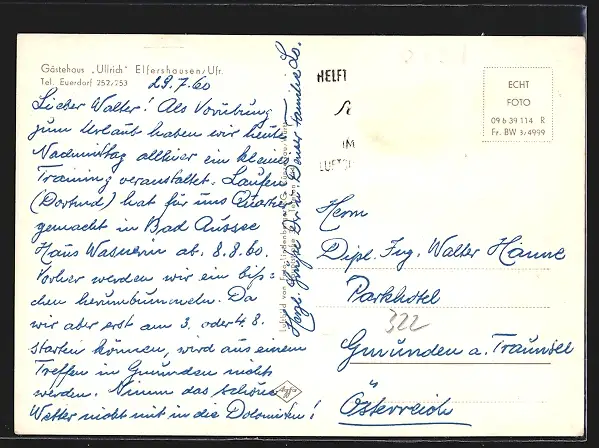 Gästehaus „Ullrich" Elfershausen/Ufr.
Tel. Euerdorf 252/253
29.7.60
Lieber Walter! Als Vorübung
zum Urlaub haben wir heute
Nachmittag allhier ein kleines
Training veranstaltet. Laufen
(Dortmund) hat für uns Quartier
gemacht in Bad Aussee
Haus Wasnerin ab. 8.8.60.
Vorher werden wir ein biß-
chen herumbummeln. Da
wir aber erst am 3. oder 4.8.
starten können, wird aus einem
Treffen in Gmunden nichts
werden. Nimm das schöne
Wetter nicht mit in die Dolomiten!
Herzl. Grüße Dir u. Deiner Familie
Agfa
HELFT
IM
ECHT
FOTO
09 b 39 114 R
Fr. BW 3/4999
Herrn
Dipl. Ing. Walter Hanne
Parkhotel
322
Gmunden a. Traunsee
Österreich